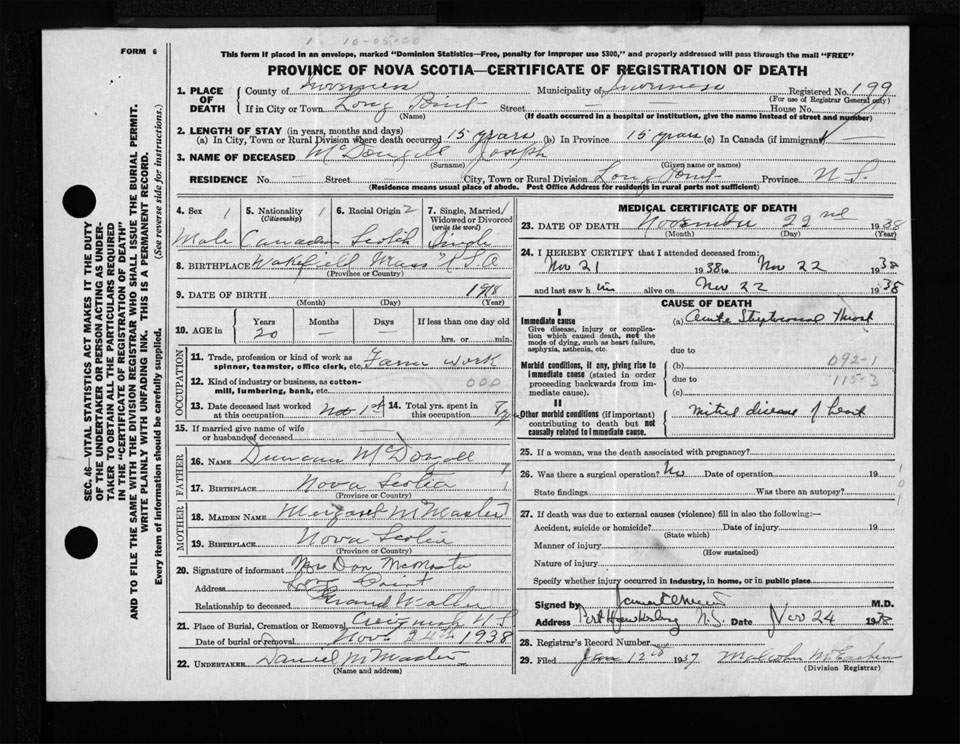 1 10-05-00
FORM 6
This form if placed in an envelope, marked "Dominion Statistics—Free, penalty for improper use $300," and properly addressed will pass through the mail "FREE"
PROVINCE OF NOVA SCOTIA—CERTIFICATE OF REGISTRATION OF DEATH
1. PLACE OF DEATH County of Inverness Municipality of Inverness Registered No. 199
(For use of Registrar General only)
If in City or Town Long Point Street — House No.
(Name) (If death occurred in a hospital or institution, give the name instead of street and number)
2. LENGTH OF STAY (in years, months and days)
(a) In City, Town or Rural Division where death occurred 15 years (b) In Province 15 years (c) In Canada (if immigrant)
3. NAME OF DECEASED McDougall Joseph
(Surname) (Given name or names)
RESIDENCE No. — Street — City, Town or Rural Division Long Point Province N.S.
(Residence means usual place of abode. Post Office Address for residents in rural parts not sufficient)
4. Sex 1 5. Nationality 1 6. Racial Origin 2 7. Single, Married, 1
(Citizenship) Widowed or Divorced
(write the word)
Male Canadian Scotch Single
8. BIRTHPLACE Wakefield Mass U S A
(Province or Country)
9. DATE OF BIRTH 1918
(Month) (Day) (Year)
10. AGE in Years Months Days If less than one day old
20 — — hrs. or min.
OCCUPATION
11. Trade, profession or kind of work as spinner, teamster, office clerk, etc. Farm work
12. Kind of industry or business, as cotton-mill, lumbering, bank, etc. 000
13. Date deceased last worked at this occupation Nov 1st 14. Total yrs. spent in this occupation
15. If married give name of wife or husband of deceased
FATHER
16. NAME Duncan McDougall
17. BIRTHPLACE Nova Scotia
(Province or Country)
MOTHER
18. MAIDEN NAME Margaret McMaster
19. BIRTHPLACE Nova Scotia
(Province or Country)
20. Signature of informant Mrs Dan McMaster
Address Long Point
Relationship to deceased Grand Mother
21. Place of Burial, Cremation or Removal Creignish N.S.
Date of burial or removal Nov. 24th 1938
22. UNDERTAKER Daniel McMaster
(Name and address)
MEDICAL CERTIFICATE OF DEATH
23. DATE OF DEATH November 22nd 1938
(Month) (Day) (Year)
24. I HEREBY CERTIFY that I attended deceased from:
Nov 21 1938 to Nov 22 1938
and last saw him alive on Nov 22 1938
CAUSE OF DEATH
I
Immediate cause (a) Acute Streptococcal Throat
Give disease, injury or complication which caused death, not the mode of dying, such as heart failure, asphyxia, asthenia, etc.
due to
Morbid conditions, if any, giving rise to immediate cause (stated in order proceeding backwards from immediate cause).
(b) 092-1
due to 115-3
(c)
II
Other morbid conditions (if important) contributing to death but not causally related to immediate cause. Mitral disease of heart
25. If a woman, was the death associated with pregnancy?
26. Was there a surgical operation? No Date of operation 19
State findings Was there an autopsy?
27. If death was due to external causes (violence) fill in also the following:—
Accident, suicide or homicide? Date of injury 19
(State which)
Manner of injury
(How sustained)
Nature of injury
Specify whether injury occurred in industry, in home, or in public place
Signed by M.D.
Address Port Hawkesbury N.S. Date Nov 24 1938
28. Registrar's Record Number
29. Filed Jan 12th 1937 Malcolm McEachern
(Division Registrar)
SEC. 46—VITAL STATISTICS ACT MAKES IT THE DUTY
OF THE UNDERTAKER OR PERSON ACTING AS UNDER-
TAKER TO OBTAIN ALL THE PARTICULARS REQUIRED
IN THE "CERTIFICATE OF REGISTRATION OF DEATH"
AND TO FILE THE SAME WITH THE DIVISION REGISTRAR WHO SHALL ISSUE THE BURIAL PERMIT.
WRITE PLAINLY WITH UNFADING INK. THIS IS A PERMANENT RECORD.
Every item of information should be carefully supplied. (See reverse side for instructions.)